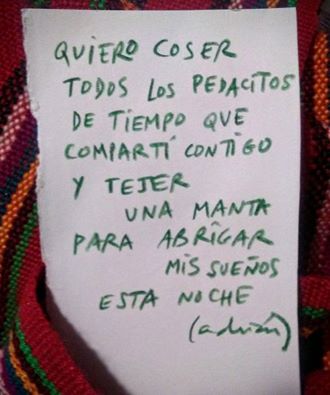 QUIERO COSER
TODOS LOS PEDACITOS
DE TIEMPO QUE
COMPARTÍ CONTIGO
Y TEJER
UNA MANTA
PARA ABRIGAR
MIS SUEÑOS
ESTA NOCHE
(adrián)